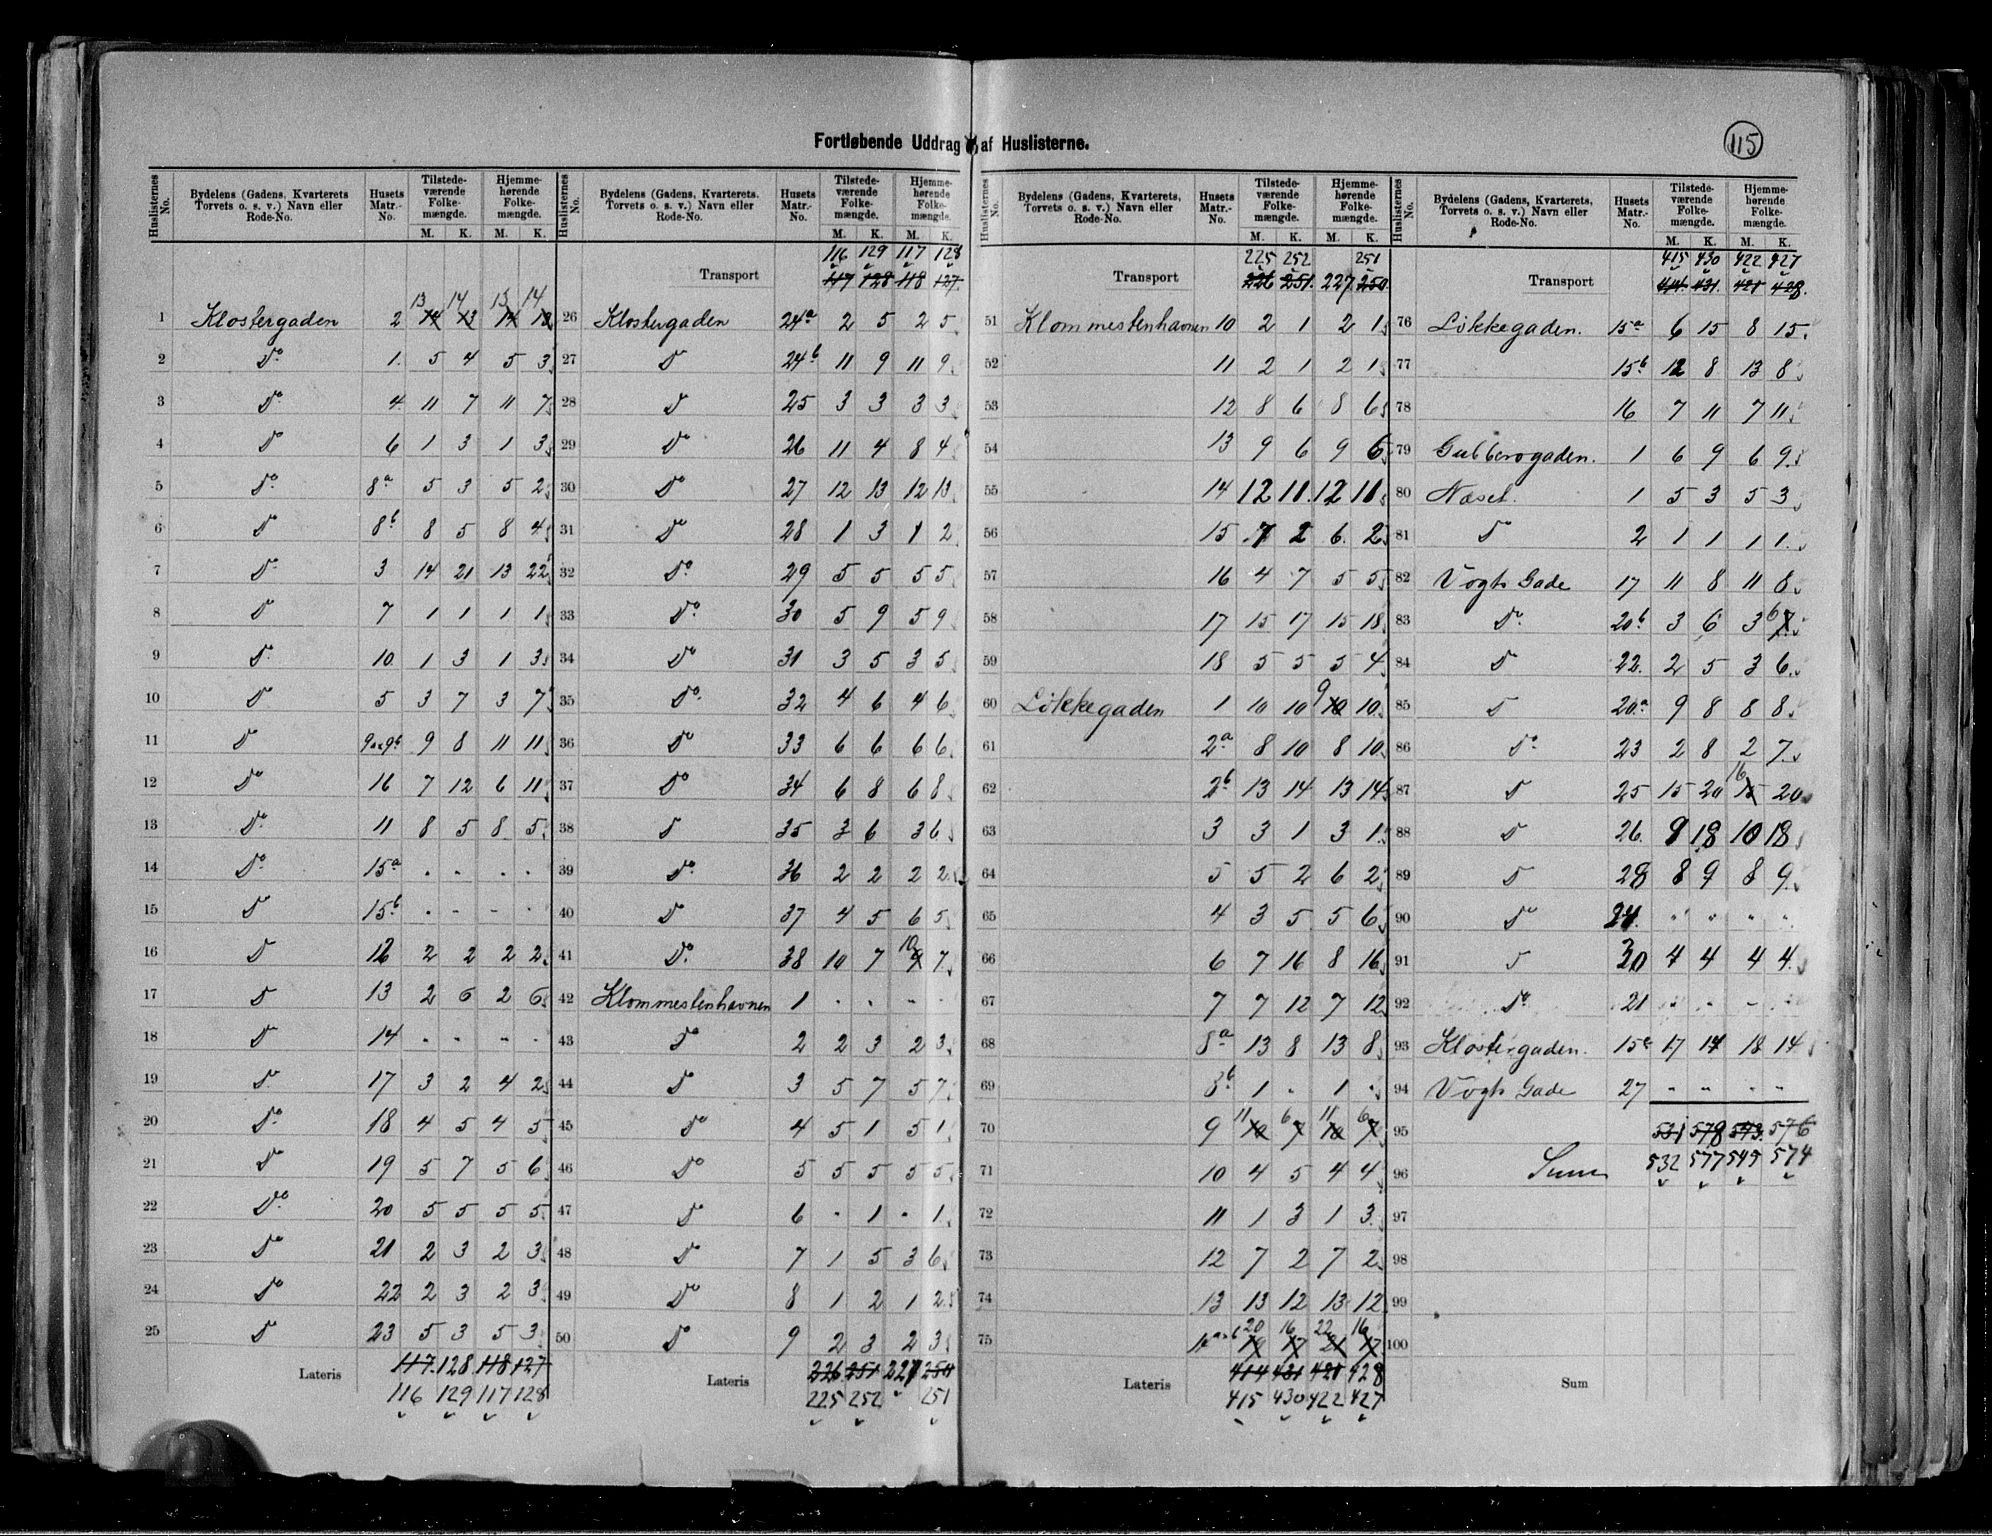 Fortløbende Uddrag af Huslisterne.
115
Huslisternes No. Bydelens (Gadens, Kvarterets Torvets o. s. v.) Navn eller Rode-No. Husets Matr.-No. Tilstedeværende Folkemængde. M. K. Hjemmehørende Folkemængde. M. K.
1 Klostergaden 2 13 14 15 14
2 Do 1 5 4 5 3
3 Do 4 11 7 11 7
4 Do 6 1 3 1 3
5 Do 8a 5 3 5 2
6 Do 8b 8 5 8 4
7 Do 3 14 21 13 22
8 Do 7 1 1 1 1
9 Do 10 1 3 1 3
10 Do 5 3 7 3 7
11 Do 9a 9b 9 8 11 11
12 Do 16 7 12 6 11
13 Do 11 8 5 8 5
14 Do 15a . . . .
15 Do 15b . - - .
16 Do 12 2 2 2 2
17 Do 13 2 6 2 6
18 Do 14 . . . .
19 Do 17 3 2 4 2
20 Do 18 4 5 4 5
21 Do 19 5 7 5 6
22 Do 20 5 5 5 5
23 Do 21 2 3 2 3
24 Do 22 2 3 2 3
25 Do 23 5 3 5 3
Lateris 117 128 118 127
116 129 117 128
Huslisternes No. Bydelens (Gadens, Kvarterets. Torvets o. s. v.) Navn eller Rode-No. Husets Matr.-No. Tilstedeværende Folkemængde. M. K. Hjemmehørende Folkemængde. M. K.
116 129 117 128
Transport 117 128 118 127
26 Klostergaden 24a 2 5 2 5
27 Do 24b 11 9 11 9
28 Do 25 3 3 3 3
29 Do 26 11 4 8 4
30 Do 27 12 13 12 13
31 Do 28 1 3 1 2
32 Do 29 5 5 5 5
33 Do 30 5 9 5 9
34 Do 31 3 5 3 5
35 Do 32 4 6 4 6
36 Do 33 6 6 6 6
37 Do 34 6 8 6 8
38 Do 35 3 6 3 6
39 Do 36 2 2 2 2
40 Do 37 4 5 6 5
41 Do 38 10 7 10 7
42 Klommestenhavnen 1 . . . .
43 Do 2 2 3 2 3
44 Do 3 5 7 5 7
45 Do 4 5 1 5 1
46 Do 5 5 5 5 5
47 Do 6 - 1 - 1
48 Do 7 1 5 3 6
49 Do 8 1 2 1 2
50 Do 9 2 3 2 3
Lateris 226 251 227 250
225 252 251
Huslisternes No. Bydelens (Gadens, Kvarterets. Torvets o. s. v.) Navn eller Rode-No. Husets Matr.-No. Tilstedeværende Folkemængde. M. K. Hjemmehørende Folkemængde. M. K.
225 252 251
Transport 226 251 227 250
51 Klommestenhavnen 10 2 1 2 1
52 11 2 1 2 1
53 12 8 6 8 6
54 13 9 6 9 6
55 14 12 11 12 11
56 15 7 2 6 2
57 16 4 7 5 5
58 17 15 17 15 18
59 18 5 5 5 4
60 Løkkegaden 1 10 10 9 10
61 2a 8 10 8 10
62 2b 13 14 13 14
63 3 3 1 3 1
64 5 5 2 6 2
65 4 3 5 5 6
66 6 7 16 8 16
67 7 7 12 7 12
68 8a 13 8 13 8
69 8b 1 . 1 .
70 9 11 6 11 6
71 10 4 5 4 4
72 11 1 3 1 3
73 12 7 2 7 2
74 13 13 12 13 12
75 20 16 22 16
Lateris 414 431 421 428
415 430 422 427
Huslisternes No. Bydelens (Gadens, Kvarterets Torvets o. s. v.) Navn eller Rode-No. Husets Matr.-No. Tilstedeværende Folkemængde. M. K. Hjemmehørende Folkemængde. M. K.
415 430 422 427
Transport 414 431 421 428
76 Løkkegaden. 15a 6 15 8 15
77 15b 12 8 13 8
78 16 7 11 7 11
79 Gubberogaden. 1 6 9 6 9
80 Næset. 1 5 3 5 3
81 Do 2 1 1 1 1
82 Vogts Gade 17 11 8 11 8
83 Do 20b 3 6 3 6
84 Do 22 2 5 3 6
85 Do 20a 9 8 8 8
86 Do 23 2 8 2 7
87 Do 25 15 20 16 20
88 Do 26 9 18 10 18
89 Do 28 8 9 8 9
90 Do 24 " " " "
91 Do 30 4 4 4 4
92 Do 21
93 Klostergaden. 17 14 18 14
94 Vogts Gade 27 " " " "
95 531 578 543 576
96 Sum 532 577 545 574
97
98
99
100
Sum